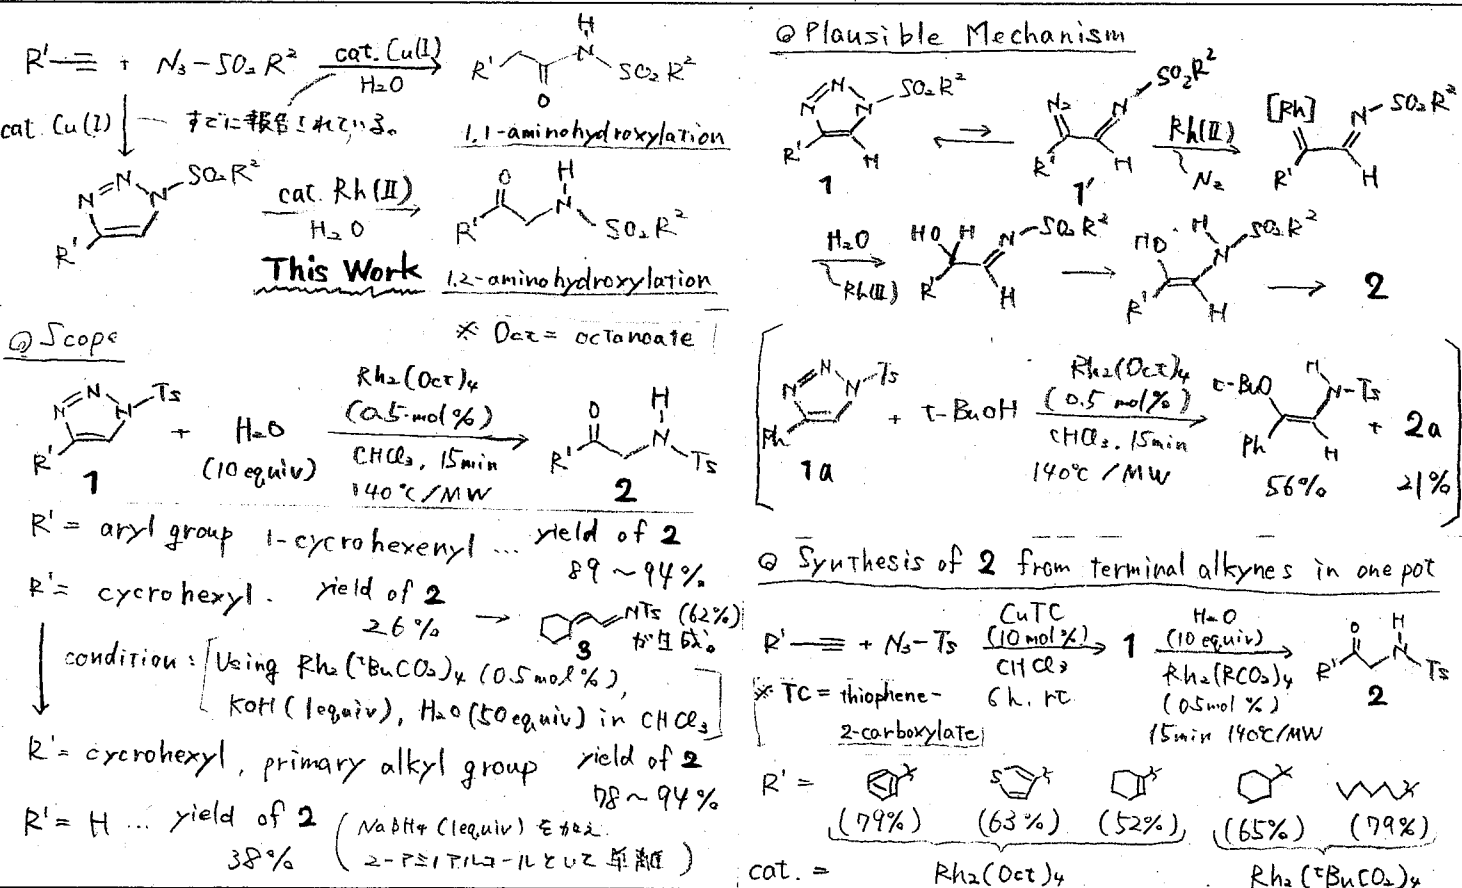 R¹ + N₃-SO₂R² cat. Cu(I) H₂O R¹ O H N SO₂R²
cat. Cu(I) すでに報告されている。 1,1-aminohydroxylation
N=N N-SO₂R² R¹ cat. Rh(II) H₂O R¹ O H N SO₂R²
This Work 1.2-aminohydroxylation
◎ Scope ※ Oct = octanoate
N=N N-Ts R¹ 1 + H₂O (10 equiv)
Rh₂(Oct)₄
(0.5 mol%)
CHCl₃, 15min
140℃/MW
R¹ O H N Ts 2
R¹ = aryl group 1-cycrohexenyl ... yield of 2
89~94%
R¹ = cycrohexyl. yield of 2
26% → 3 NTs (62%) が生成。
condition: Using Rh₂(ᵗBuCO₂)₄ (0.5mol%),
KOH (1equiv), H₂O (50equiv) in CHCl₃
R¹ = cycrohexyl, primary alkyl group yield of 2
78~94%
R¹ = H ... yield of 2
38%
(NaBH₄ (1equiv) を加え.
2-アミノアルコールとして単離)
◎ Plausible Mechanism
N=N N-SO₂R² R¹ H 1
N₂ N SO₂R² R¹ H 1'
Rh(II) N₂
[Rh] N-SO₂R² R¹ H
H₂O Rh(II)
HO H N-SO₂R² R¹ H
HO H N SO₂R² R¹ H → 2
N=N N-Ts Ph 1a + t-BuOH
Rh₂(Oct)₄
(0.5 mol%)
CHCl₃. 15min
140℃/MW
t-BuO H N-Ts Ph H + 2a
56% 21%
◎ Synthesis of 2 from terminal alkynes in one pot
R¹ + N₃-Ts
CuTC
(10 mol%)
CHCl₃
6h. rt
1
H₂O
(10 equiv)
Rh₂(RCO₂)₄
(0.5mol%)
15min 140℃/MW
R¹ O H N Ts 2
※ TC = thiophene-
2-carboxylate
R¹ =
(79%) (63%) (52%) (65%) (79%)
cat. = Rh₂(Oct)₄ Rh₂(ᵗBuCO₂)₄